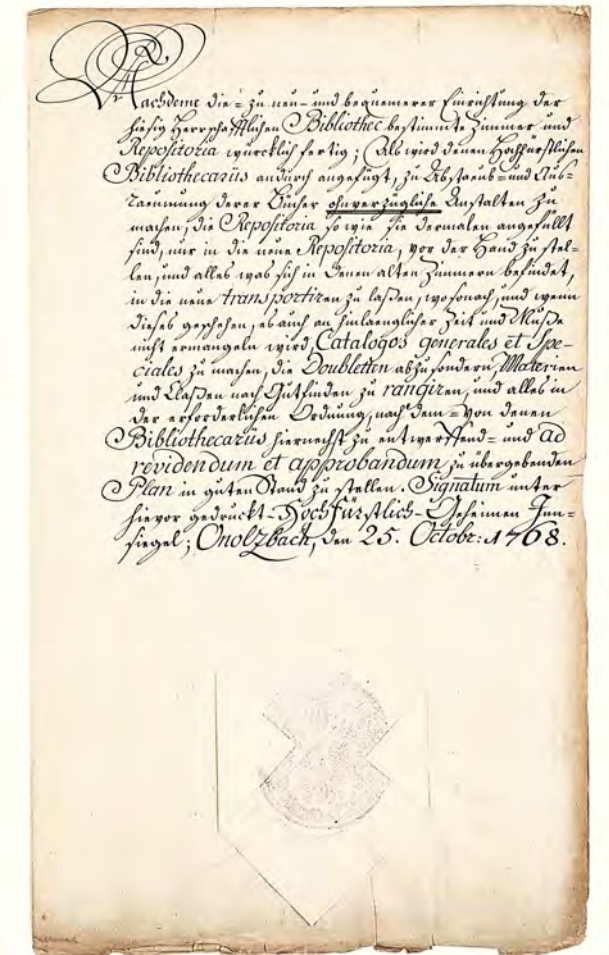 Nachdeme die = zu neu = und bequemerer Einrichtung der
hiesig Herrschafftlichen Bibliothec bestimmte Zimmer und
Repositoria würcklich fertig; Als wird denen Hochfürstlichen
Bibliothecariis andurch angefügt, zu Abstaeub = und Aus-
raeumung derer Bücher ohnverzügliche Anstalten zu
machen, die Repositoria so wie sie dermalen angefüllt
sind, nur in die neue Repositoria, vor der Hand zu stel-
len, und alles was sich in denen alten Zimmern befindet,
in die neue transportiren zu laßen, wo sonach, und wenn
dieses geschehen, es auch an hinlaenglicher Zeit und Muße
nicht ermangeln wird, Catalogos generales et Spe-
ciales zu machen, die Doubletten abzusondern, Materien
und Claßen nach Gutfinden zu rangiren, und alles in
der erforderlichen Ordnung, nach dem = von denen
Bibliothecariis hiernechst zu entwerffend = und ad
revidendum et approbandum zu übergebenden
Plan in guten Stand zu stellen. Signatum unter
hievor gedruckt = Hochfürstlich = Geheimen Inn =
siegel; Onolzbach, den 25. Octobr: 1768.